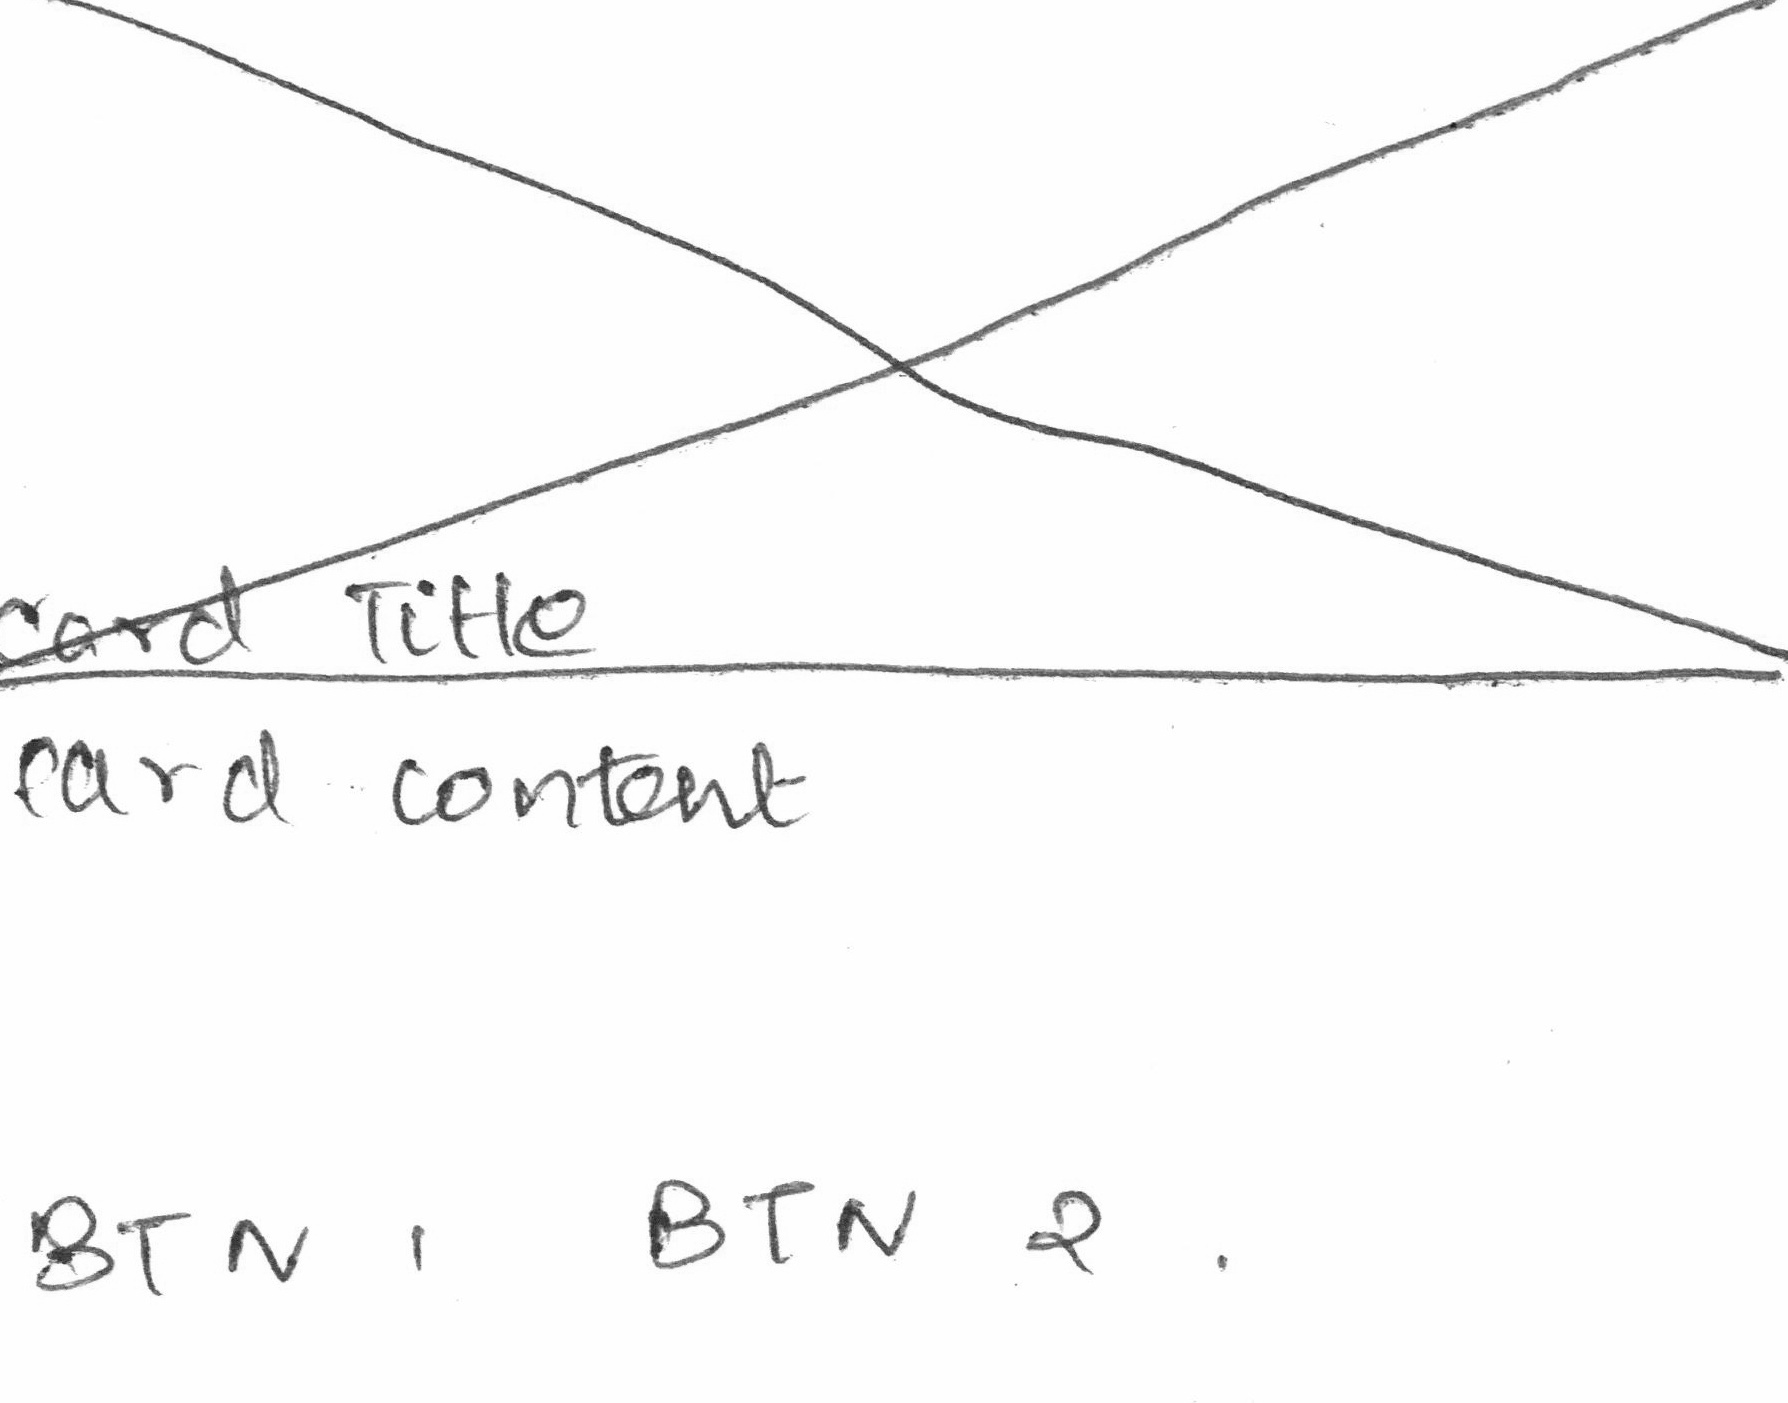 Card Title
card content
BTN 1 BTN 2.